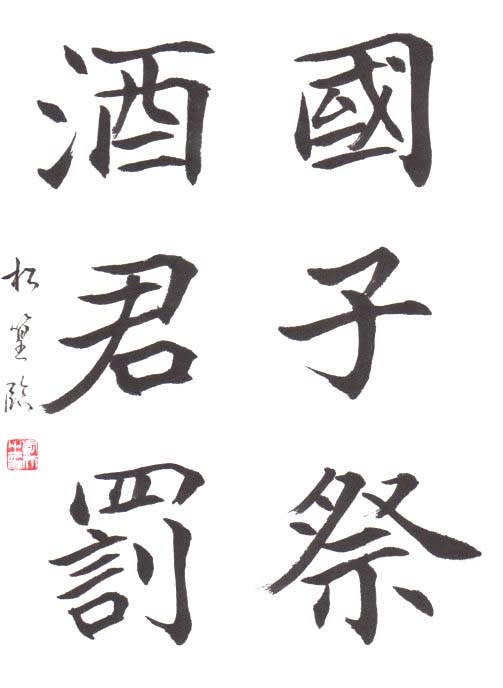 國子祭
酒君罰
松篁臨